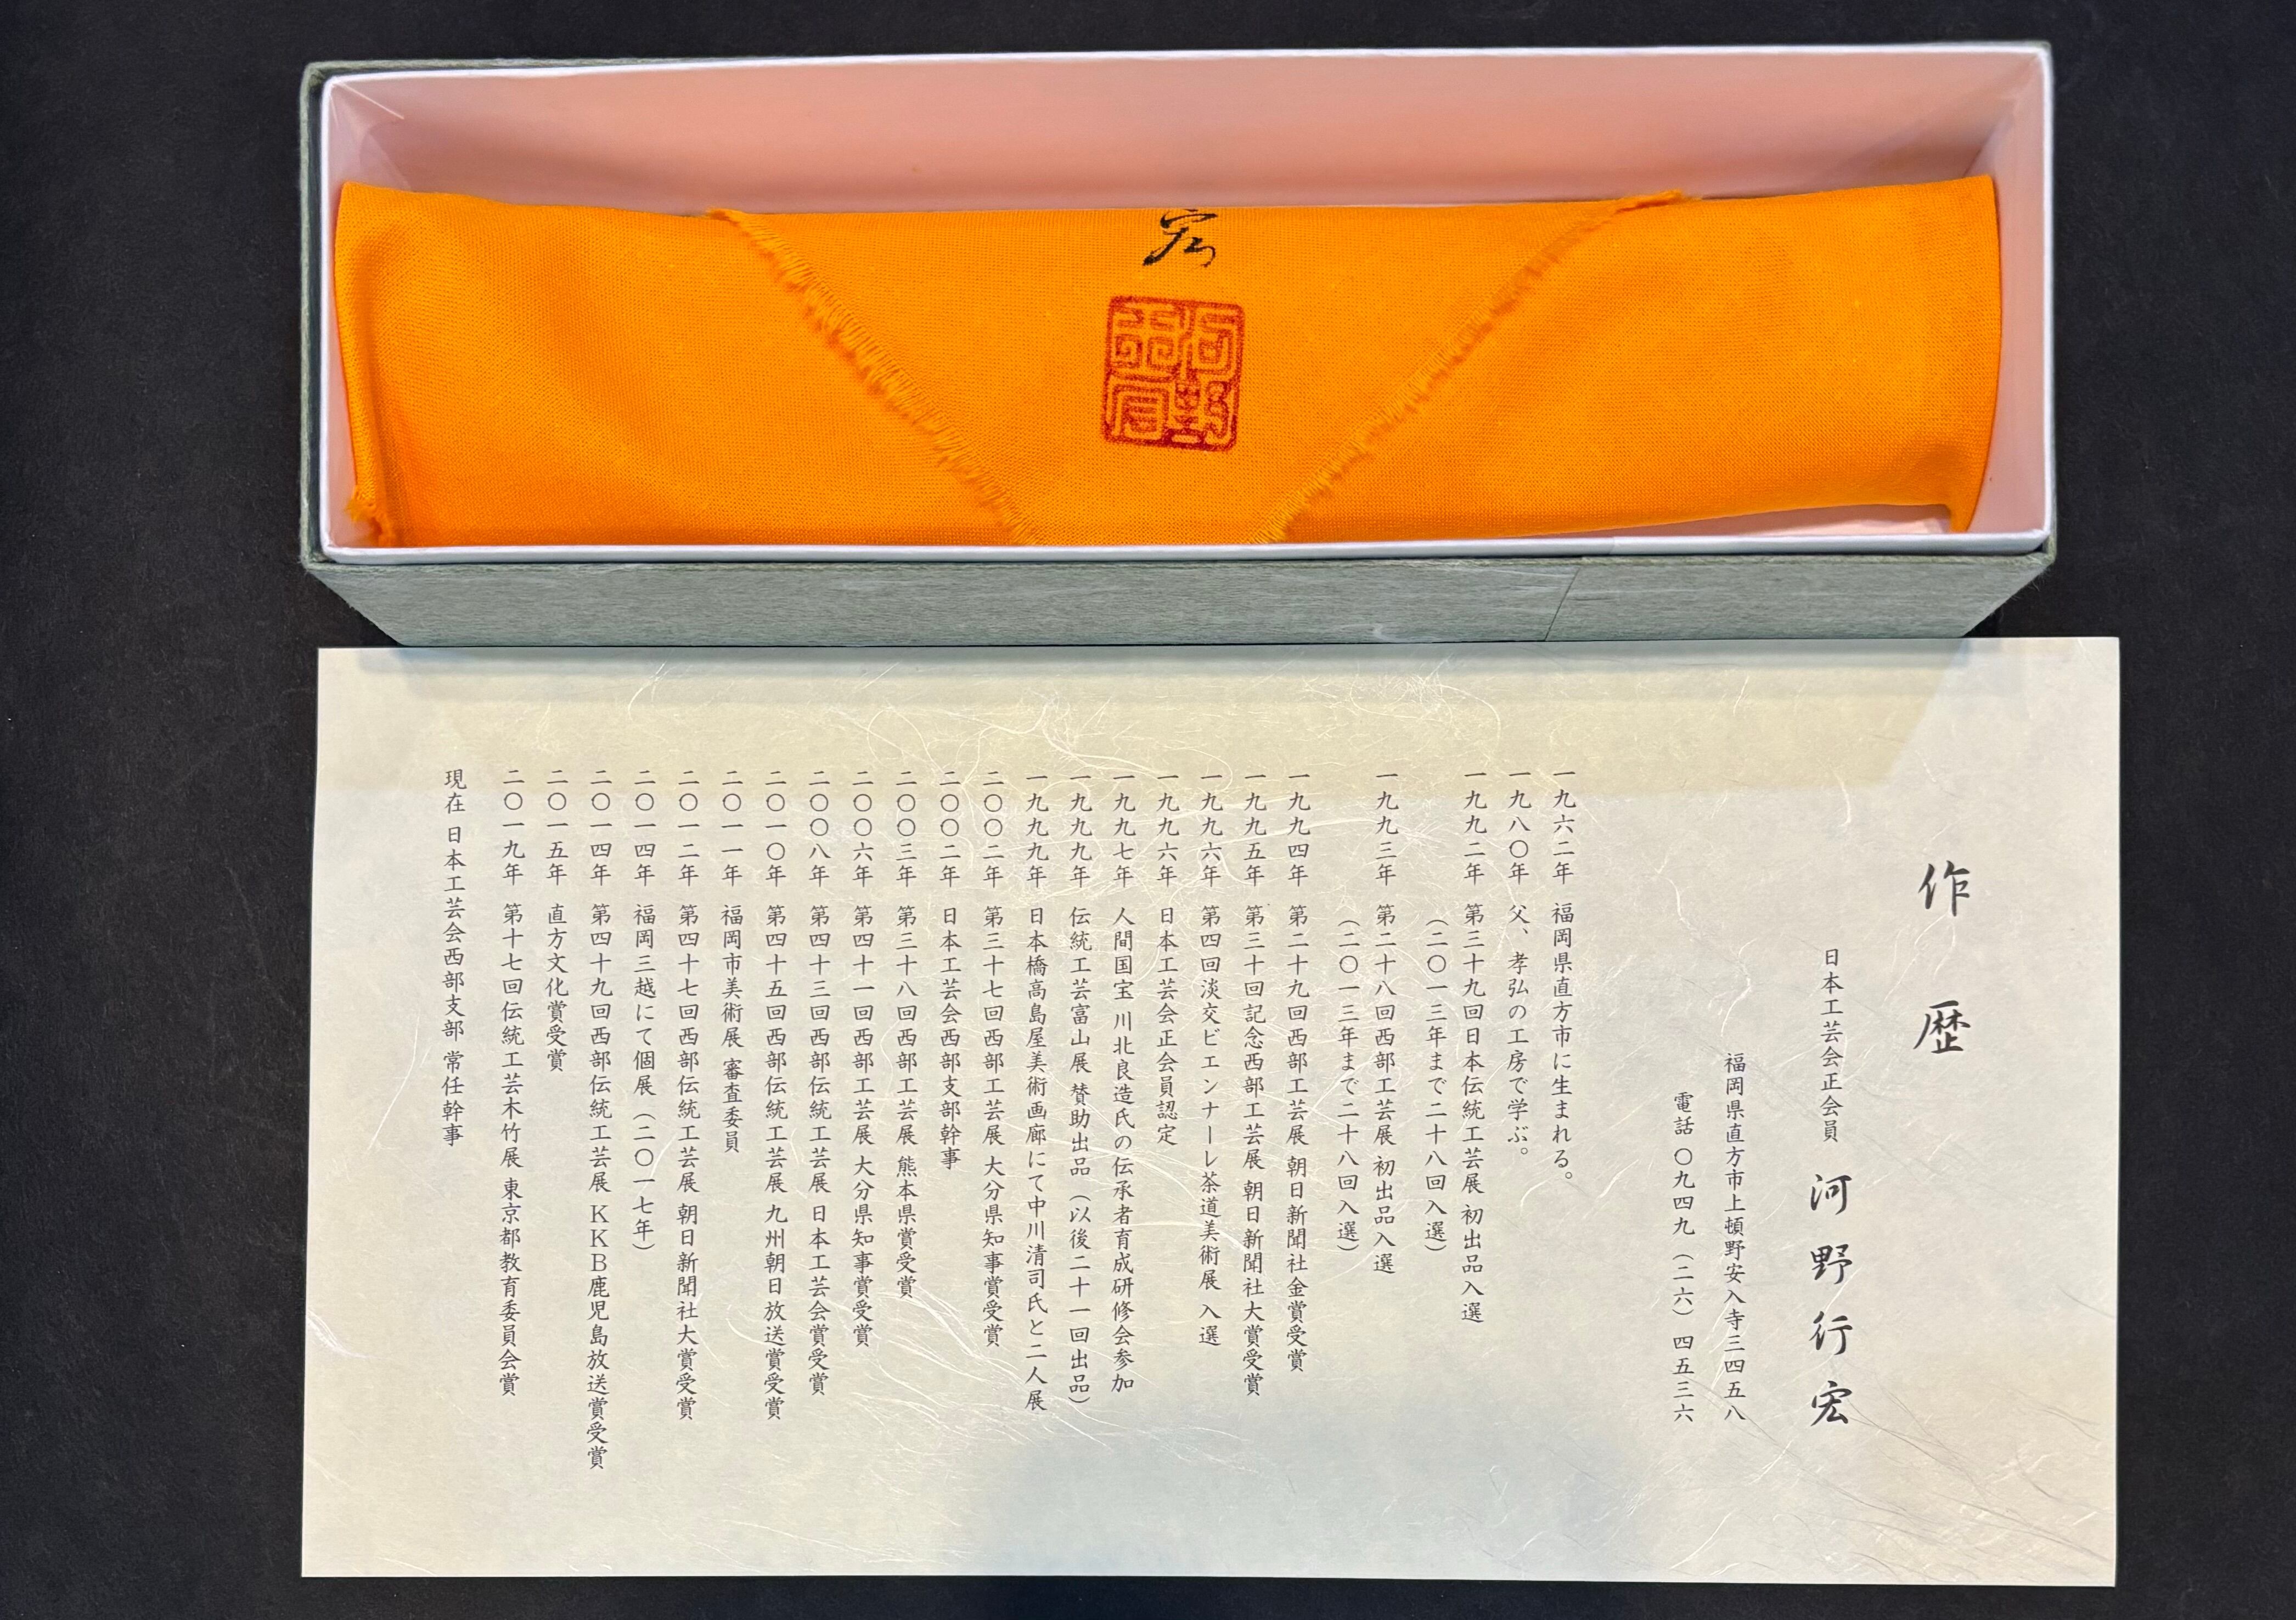 宏
河野
行宏
作歴
日本工芸会正会員 河野行宏
福岡県直方市上頓野安入寺三四五八
電話 〇九四九(二六)四五三六
一九六二年 福岡県直方市に生まれる。
一九八〇年 父、孝弘の工房で学ぶ。
一九九二年 第三十九回日本伝統工芸展 初出品入選
(二〇一三年まで二十八回入選)
一九九三年 第二十八回西部工芸展 初出品入選
(二〇一三年まで二十八回入選)
一九九四年 第二十九回西部工芸展 朝日新聞社金賞受賞
一九九五年 第三十回記念西部工芸展 朝日新聞社大賞受賞
一九九六年 第四回淡交ビエンナーレ茶道美術展 入選
一九九六年 日本工芸会正会員認定
一九九七年 人間国宝 川北良造氏の伝承者育成研修会参加
一九九九年 伝統工芸富山展 賛助出品(以後二十一回出品)
一九九九年 日本橋高島屋美術画廊にて中川清司氏と二人展
二〇〇二年 第三十七回西部工芸展 大分県知事賞受賞
二〇〇二年 日本工芸会西部支部幹事
二〇〇三年 第三十八回西部工芸展 熊本県賞受賞
二〇〇六年 第四十一回西部工芸展 大分県知事賞受賞
二〇〇八年 第四十三回西部伝統工芸展 日本工芸会賞受賞
二〇一〇年 第四十五回西部伝統工芸展 九州朝日放送賞受賞
二〇一一年 福岡市美術展 審査委員
二〇一二年 第四十七回西部伝統工芸展 朝日新聞社大賞受賞
二〇一四年 福岡三越にて個展(二〇一七年)
二〇一四年 第四十九回西部伝統工芸展 KKB鹿児島放送賞受賞
二〇一五年 直方文化賞受賞
二〇一九年 第十七回伝統工芸木竹展 東京都教育委員会賞
現在 日本工芸会西部支部 常任幹事